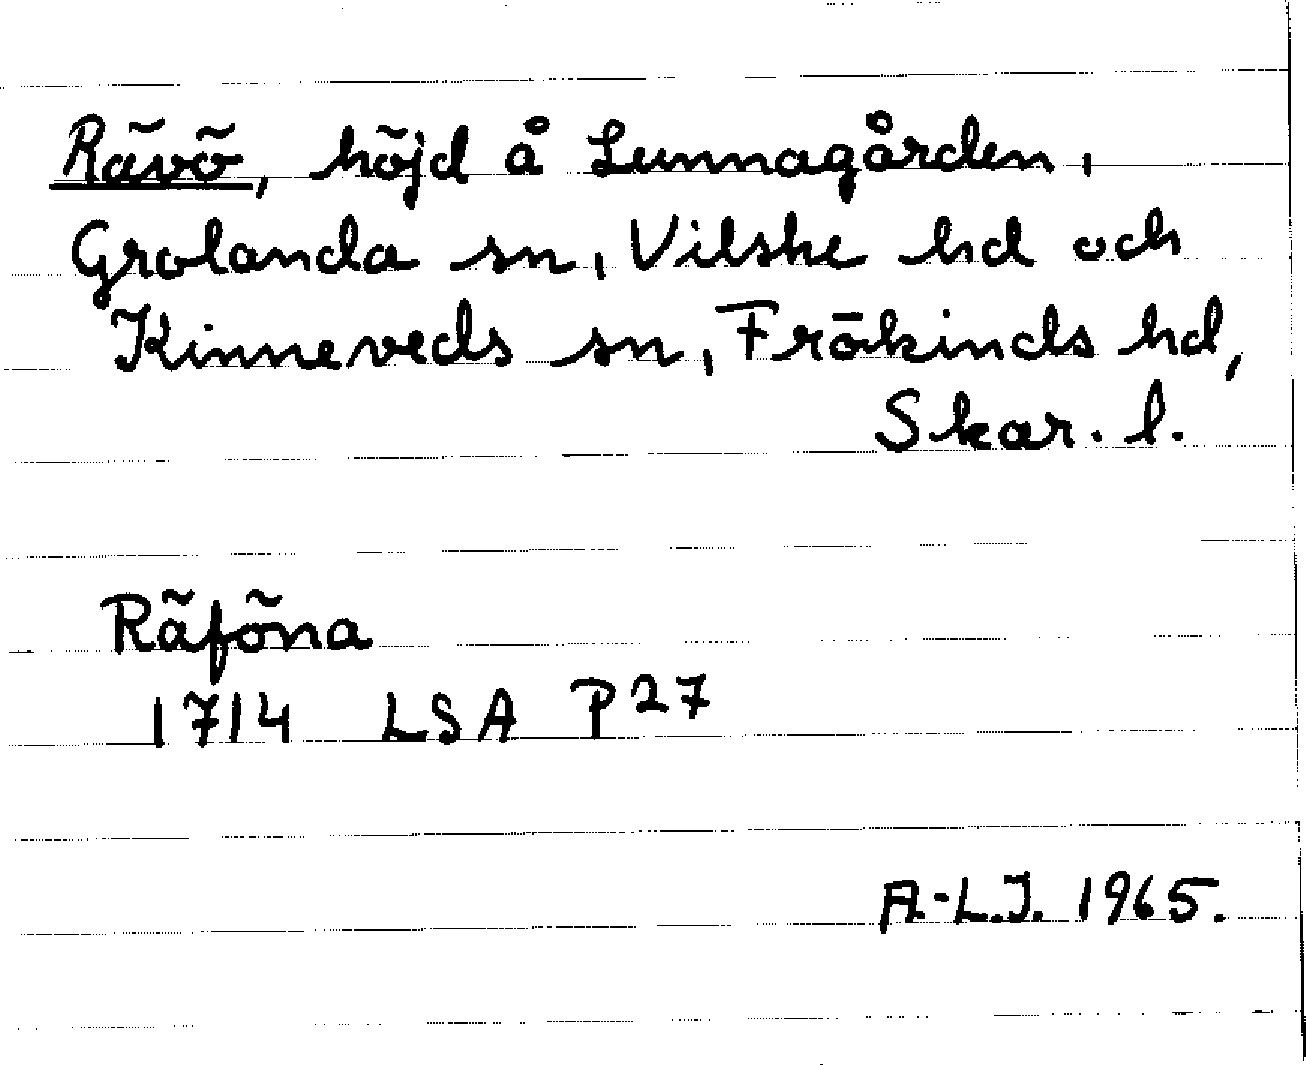 Rävö, höjd å Lunnagården,
Grolanda sn, Vilske hd och
Kinneveds sn, Frökinds hd,
Skar. l.
Räföna
1714 LSA P27
A-L.J. 1965.